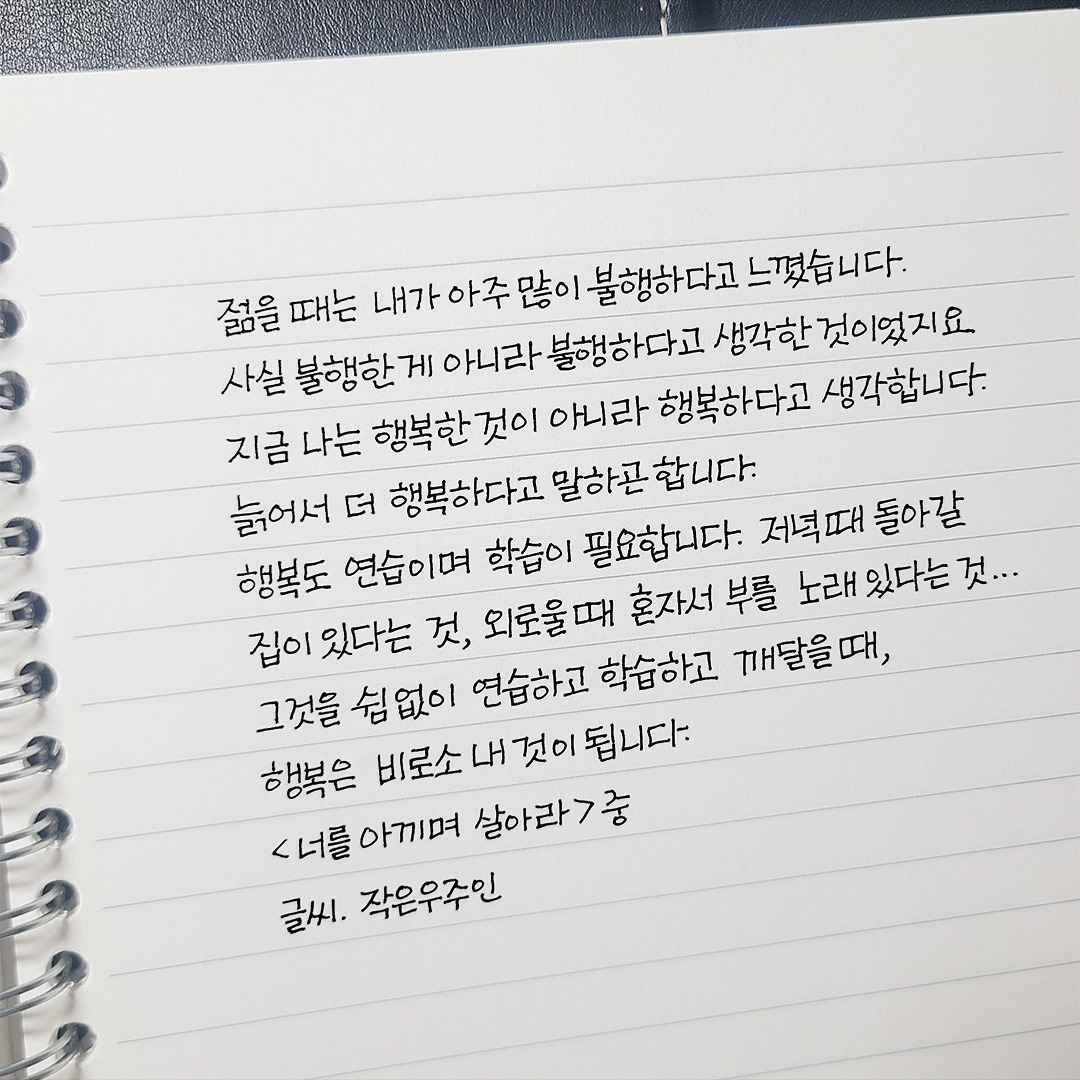 젊을 때는 내가 아주 많이 불행하다고 느꼈습니다.
사실 불행한 게 아니라 불행하다고 생각한 것이었지요.
지금 나는 행복한 것이 아니라 행복하다고 생각합니다.
늙어서 더 행복하다고 말하곤 합니다.
행복도 연습이며 학습이 필요합니다. 저녁때 돌아갈
집이 있다는 것, 외로울 때 혼자서 부를 노래 있다는 것...
그것을 쉼없이 연습하고 학습하고 깨달을 때,
행복은 비로소 내 것이 됩니다.
<너를 아끼며 살아라> 중
글씨. 작은우주인